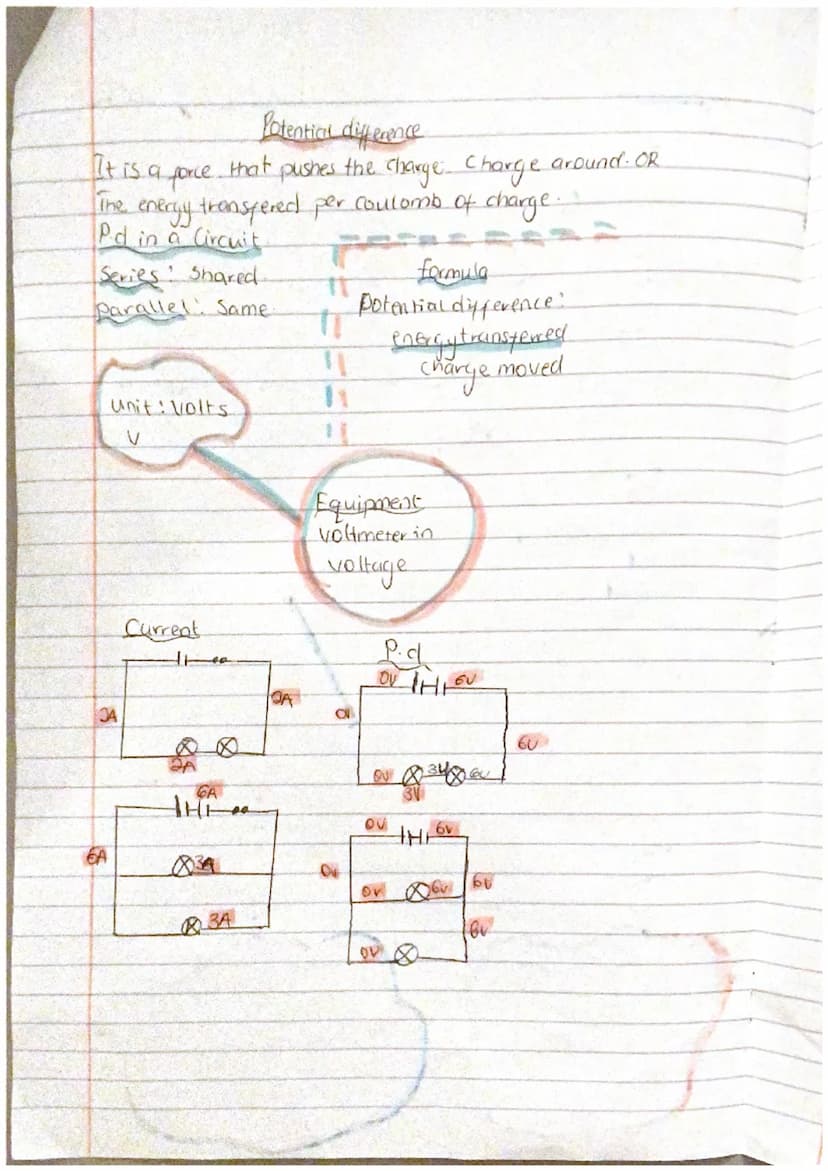 Potential difference
It is a force that pushes the charge. Charge around. OR
The energy transfered per coulomb of charge.
Pd in a Circuit
Series: Shared
parallel: Same
formula
Potential difference:
energy transferred
charge moved
unit: volts
V
Equipment
voltmeter in
voltage
Current
2A
2A
2A
P.d
0V 6V
0V
6V
0V 3V 6V
3V
6A
6A
3A
3A
0V 6V
0V
0V 6V 6V
6V
0V